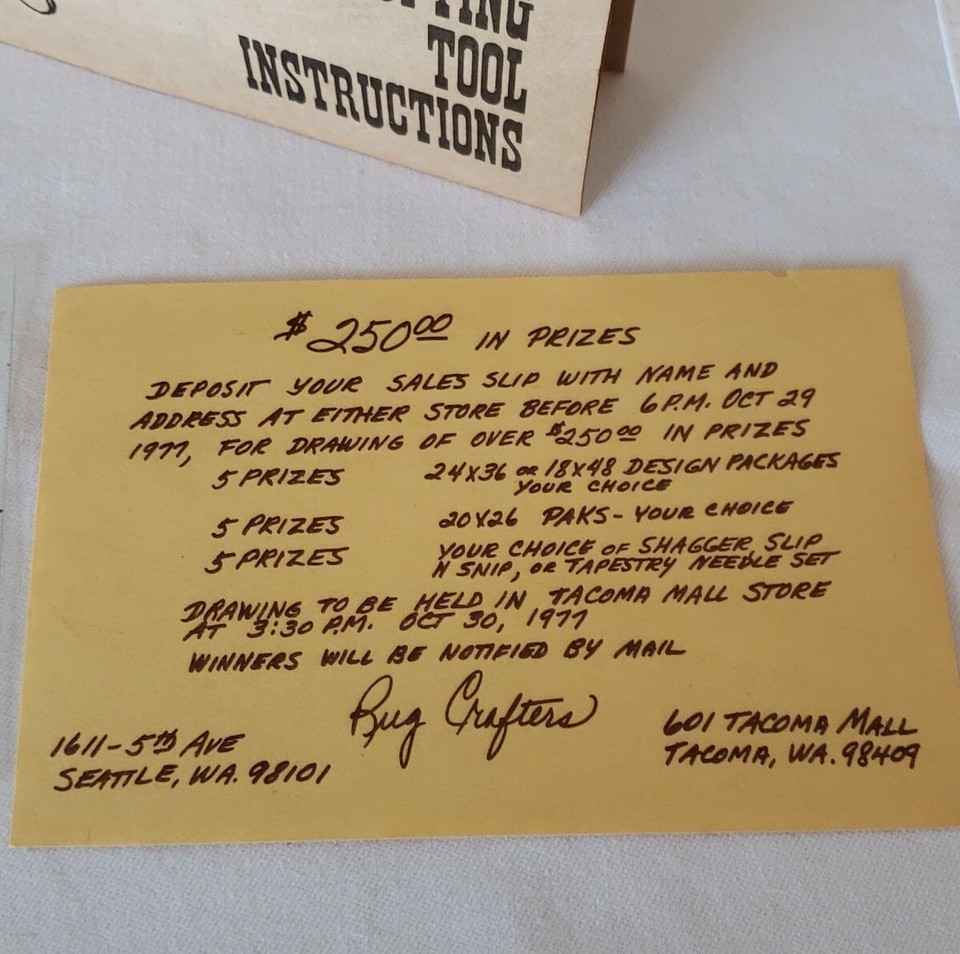 TOOL
INSTRUCTIONS
$250.00 IN PRIZES
DEPOSIT YOUR SALES SLIP WITH NAME AND
ADDRESS AT EITHER STORE BEFORE 6 P.M. OCT 29
1977, FOR DRAWING OF OVER $250.00 IN PRIZES
5 PRIZES 24X36 or 18X48 DESIGN PACKAGES
YOUR CHOICE
5 PRIZES 20X26 PAKS - YOUR CHOICE
5 PRIZES YOUR CHOICE OF SHAGGER, SLIP
N SNIP, or TAPESTRY NEEDLE SET
DRAWING TO BE HELD IN TACOMA MALL STORE
AT 3:30 P.M. OCT 30, 1977
WINNERS WILL BE NOTIFIED BY MAIL
Rug Crafters
1611-5th AVE
SEATTLE, WA. 98101
601 TACOMA MALL
TACOMA, WA. 98409